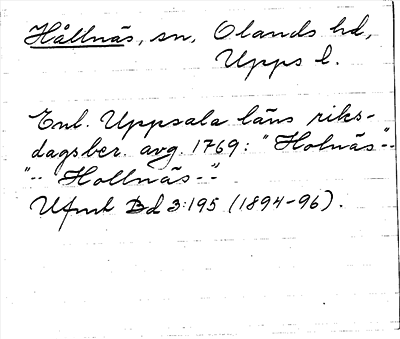 Hållnäs, sn, Olands hd,
Upps l.
Enl. Uppsala läns riks-
dagsber. avg. 1769: "Holnäs"--
"-- Hollnäs--"
Ufmt Bd 3:195 (1894-96).